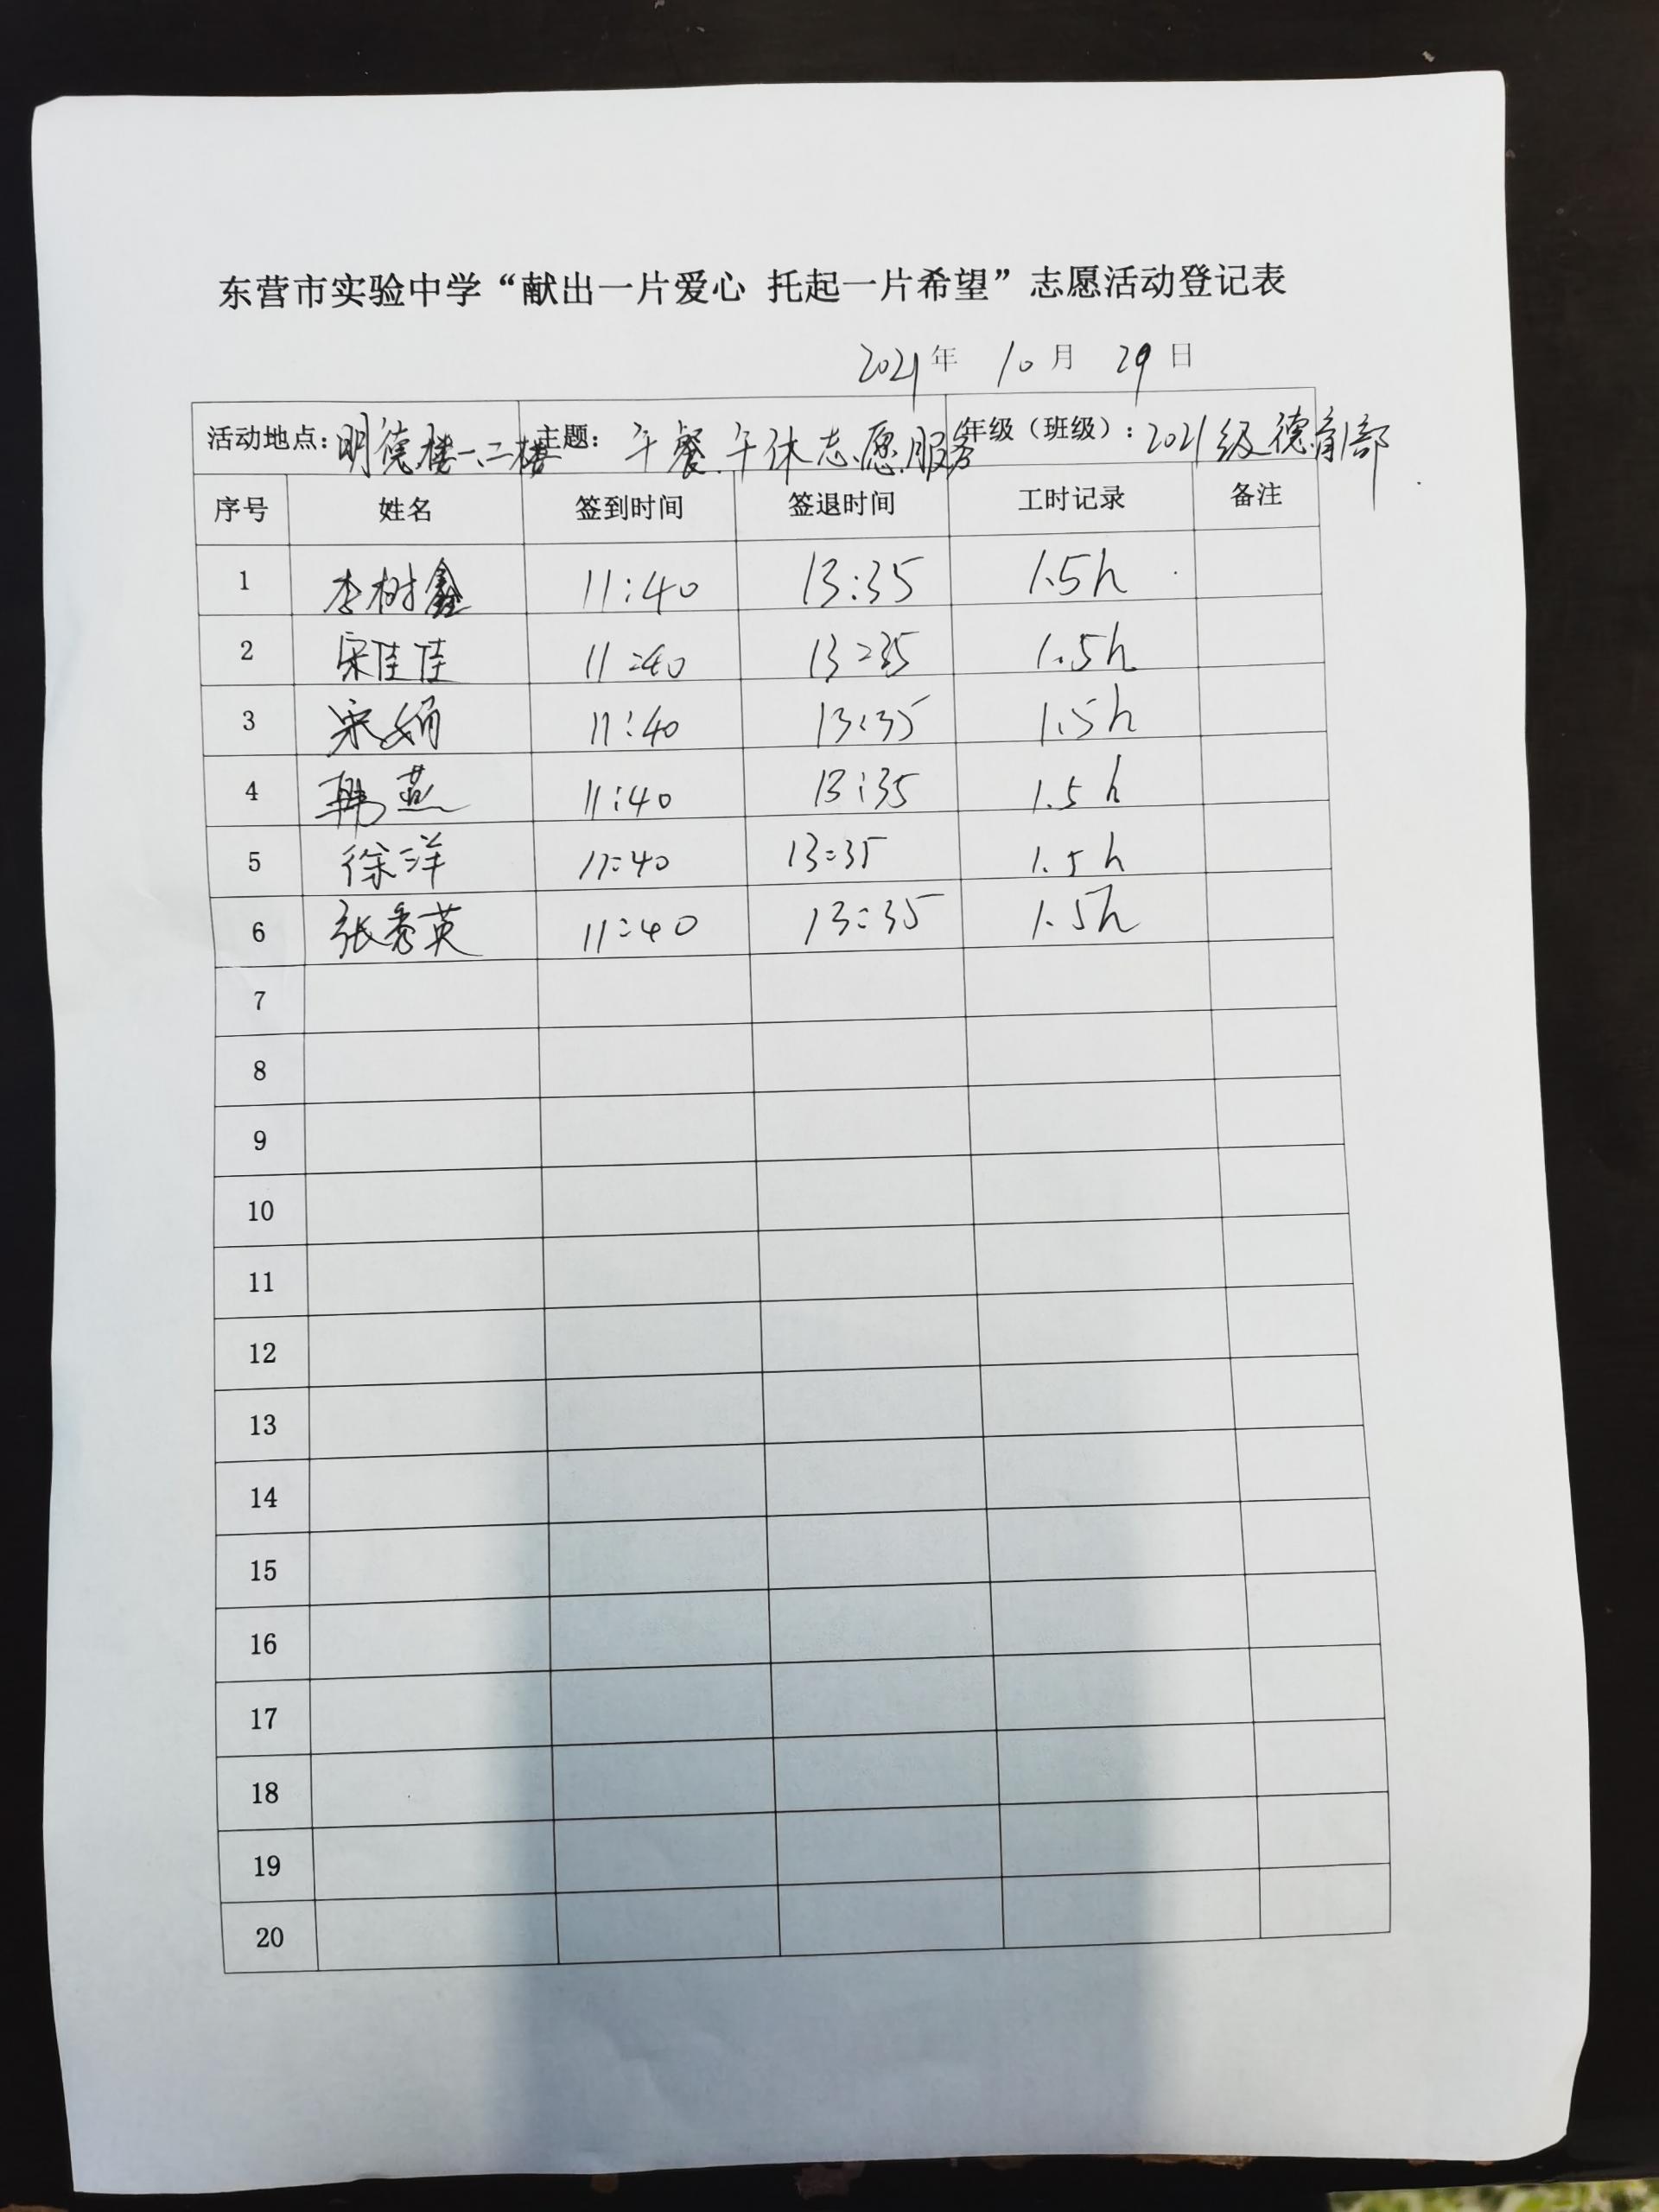 东营市实验中学“献出一片爱心 托起一片希望”志愿活动登记表
2021年 10月 29日
活动地点：明德楼一、二楼 主题：午餐、午休志愿服务 年级（班级）：2021级德育部
序号 姓名 签到时间 签退时间 工时记录 备注
1 李树鑫 11:40 13:35 1.5h
2 宋佳佳 11:40 13:35 1.5h
3 宋娟 11:40 13:35 1.5h
4 韩燕 11:40 13:35 1.5h
5 徐洋 11:40 13:35 1.5h
6 张秀英 11:40 13:35 1.5h
7
8
9
10
11
12
13
14
15
16
17
18
19
20